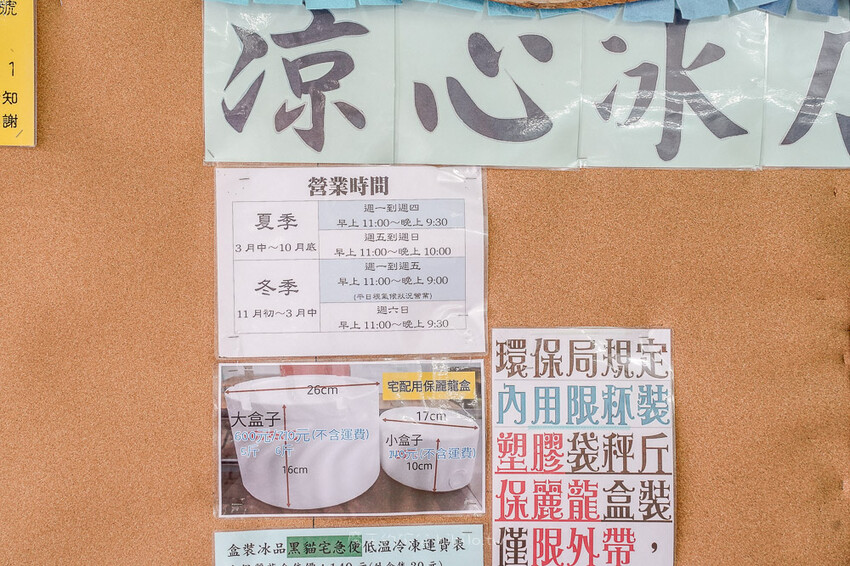 號
1
知
謝
涼心冰
營業時間
夏季
3 月中～10 月底
週一到週四
早上 11:00～晚上 9:30
週五到週日
早上 11:00～晚上 10:00
冬季
11 月初～3 月中
週一到週五
早上 11:00～晚上 9:00
(平日視氣候狀況營業)
週六日
早上 11:00～晚上 9:30
宅配用保麗龍盒
26cm
大盒子
(不含運費)
16cm
17cm
小盒子
(不含運費)
10cm
盒裝冰品黑貓宅急便低溫冷凍運費表
環保局規定
內用限杯裝
塑膠袋秤丘
保麗龍盒裝
僅限外帶，